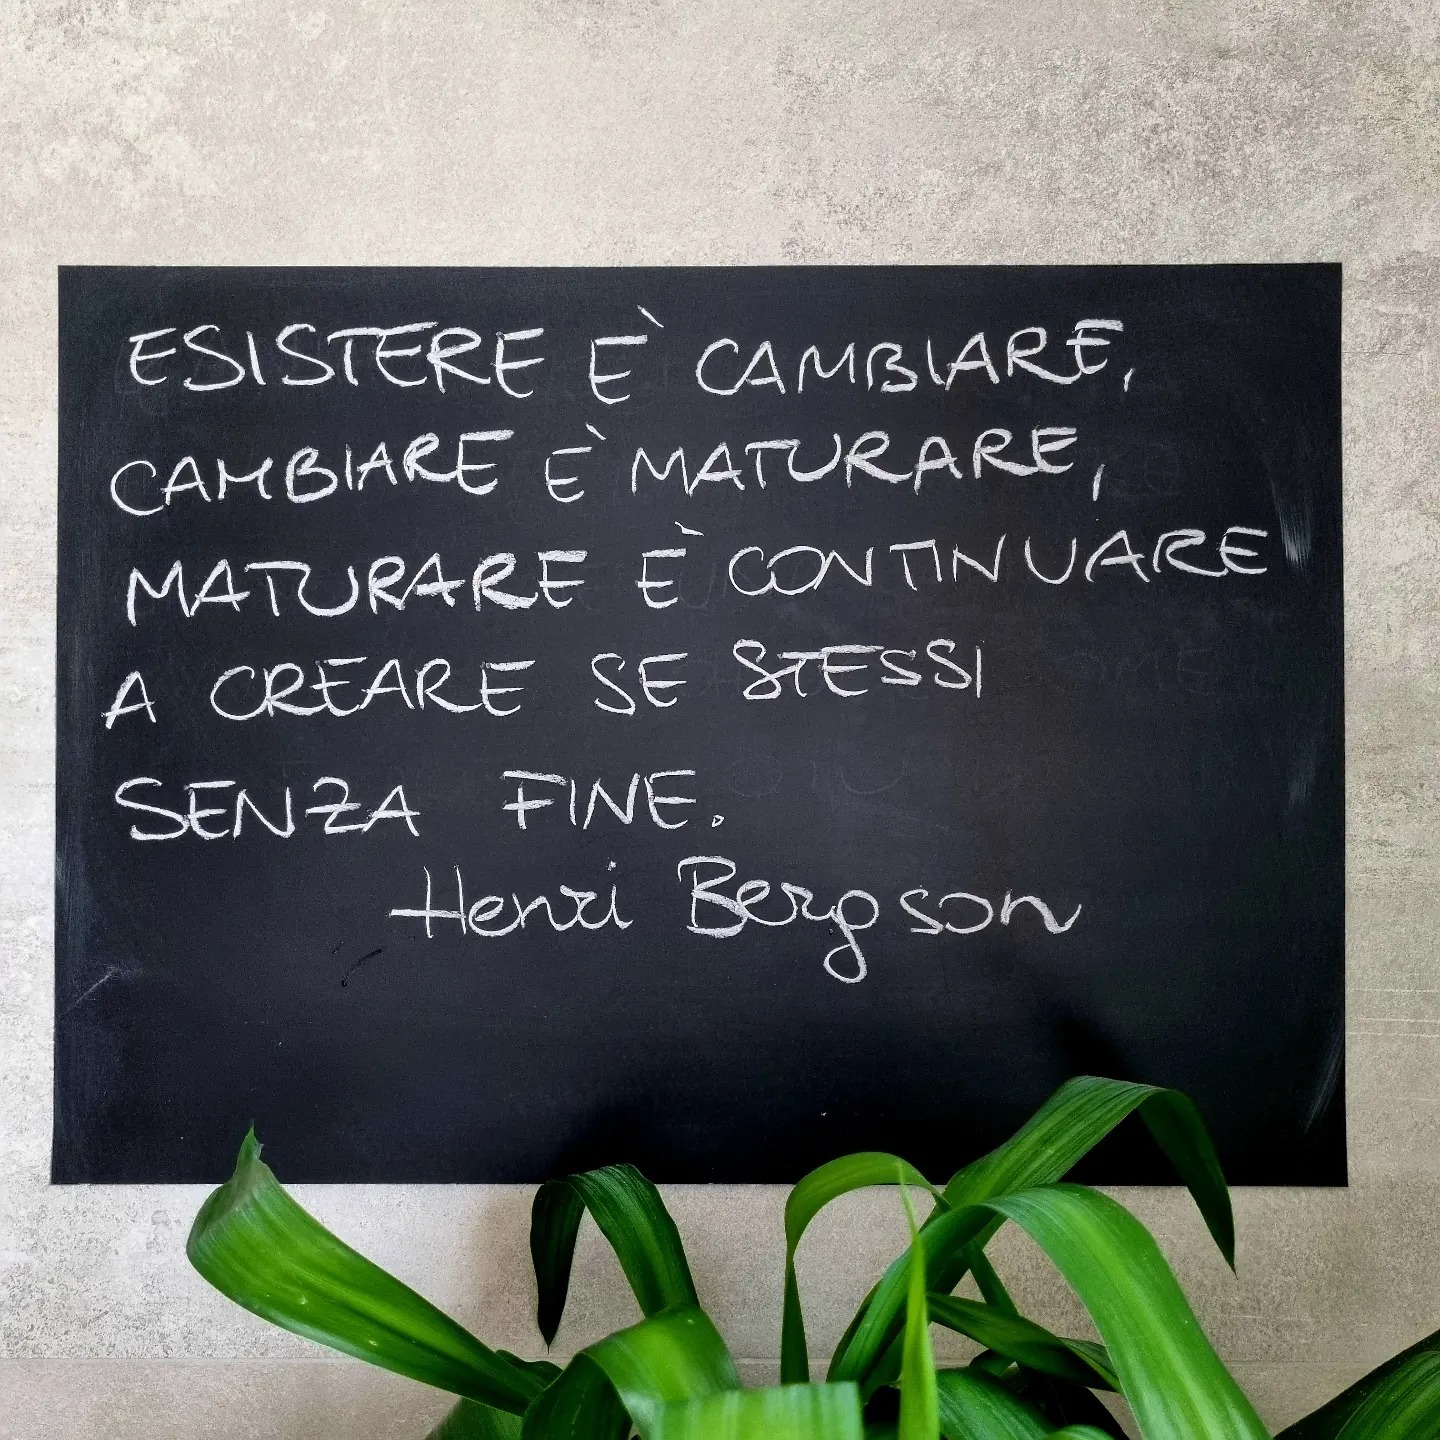 ESISTERE È CAMBIARE,
CAMBIARE È MATURARE,
MATURARE È CONTINUARE
A CREARE SE STESSI
SENZA FINE.
Henri Bergson